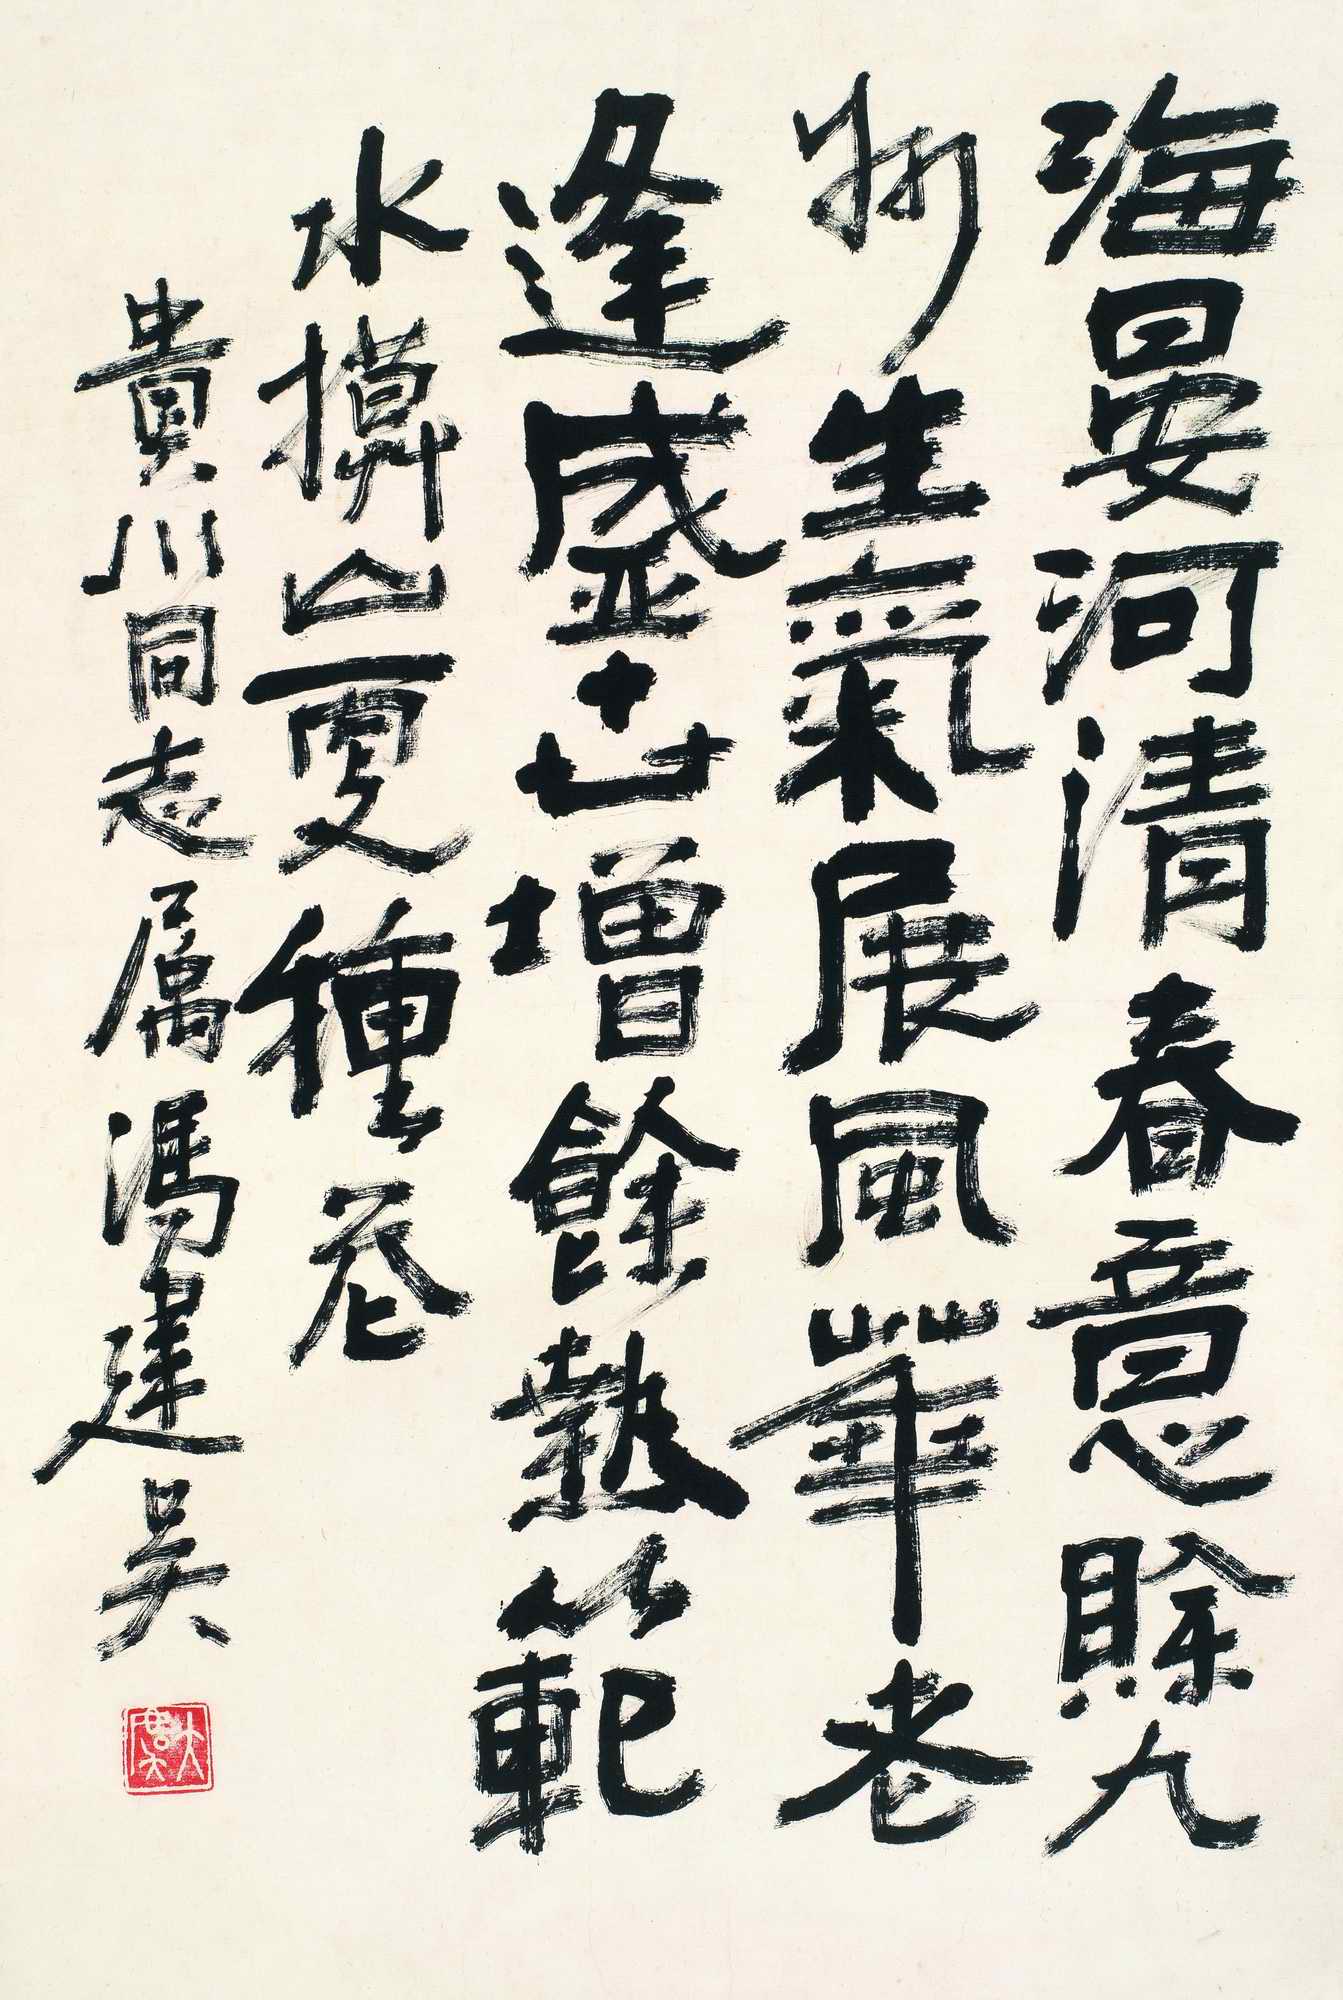 海晏河清春意賖九
州生氣展風華老
逢盛世增餘熱範
水摸山更種花
貴川同志属馮建吳